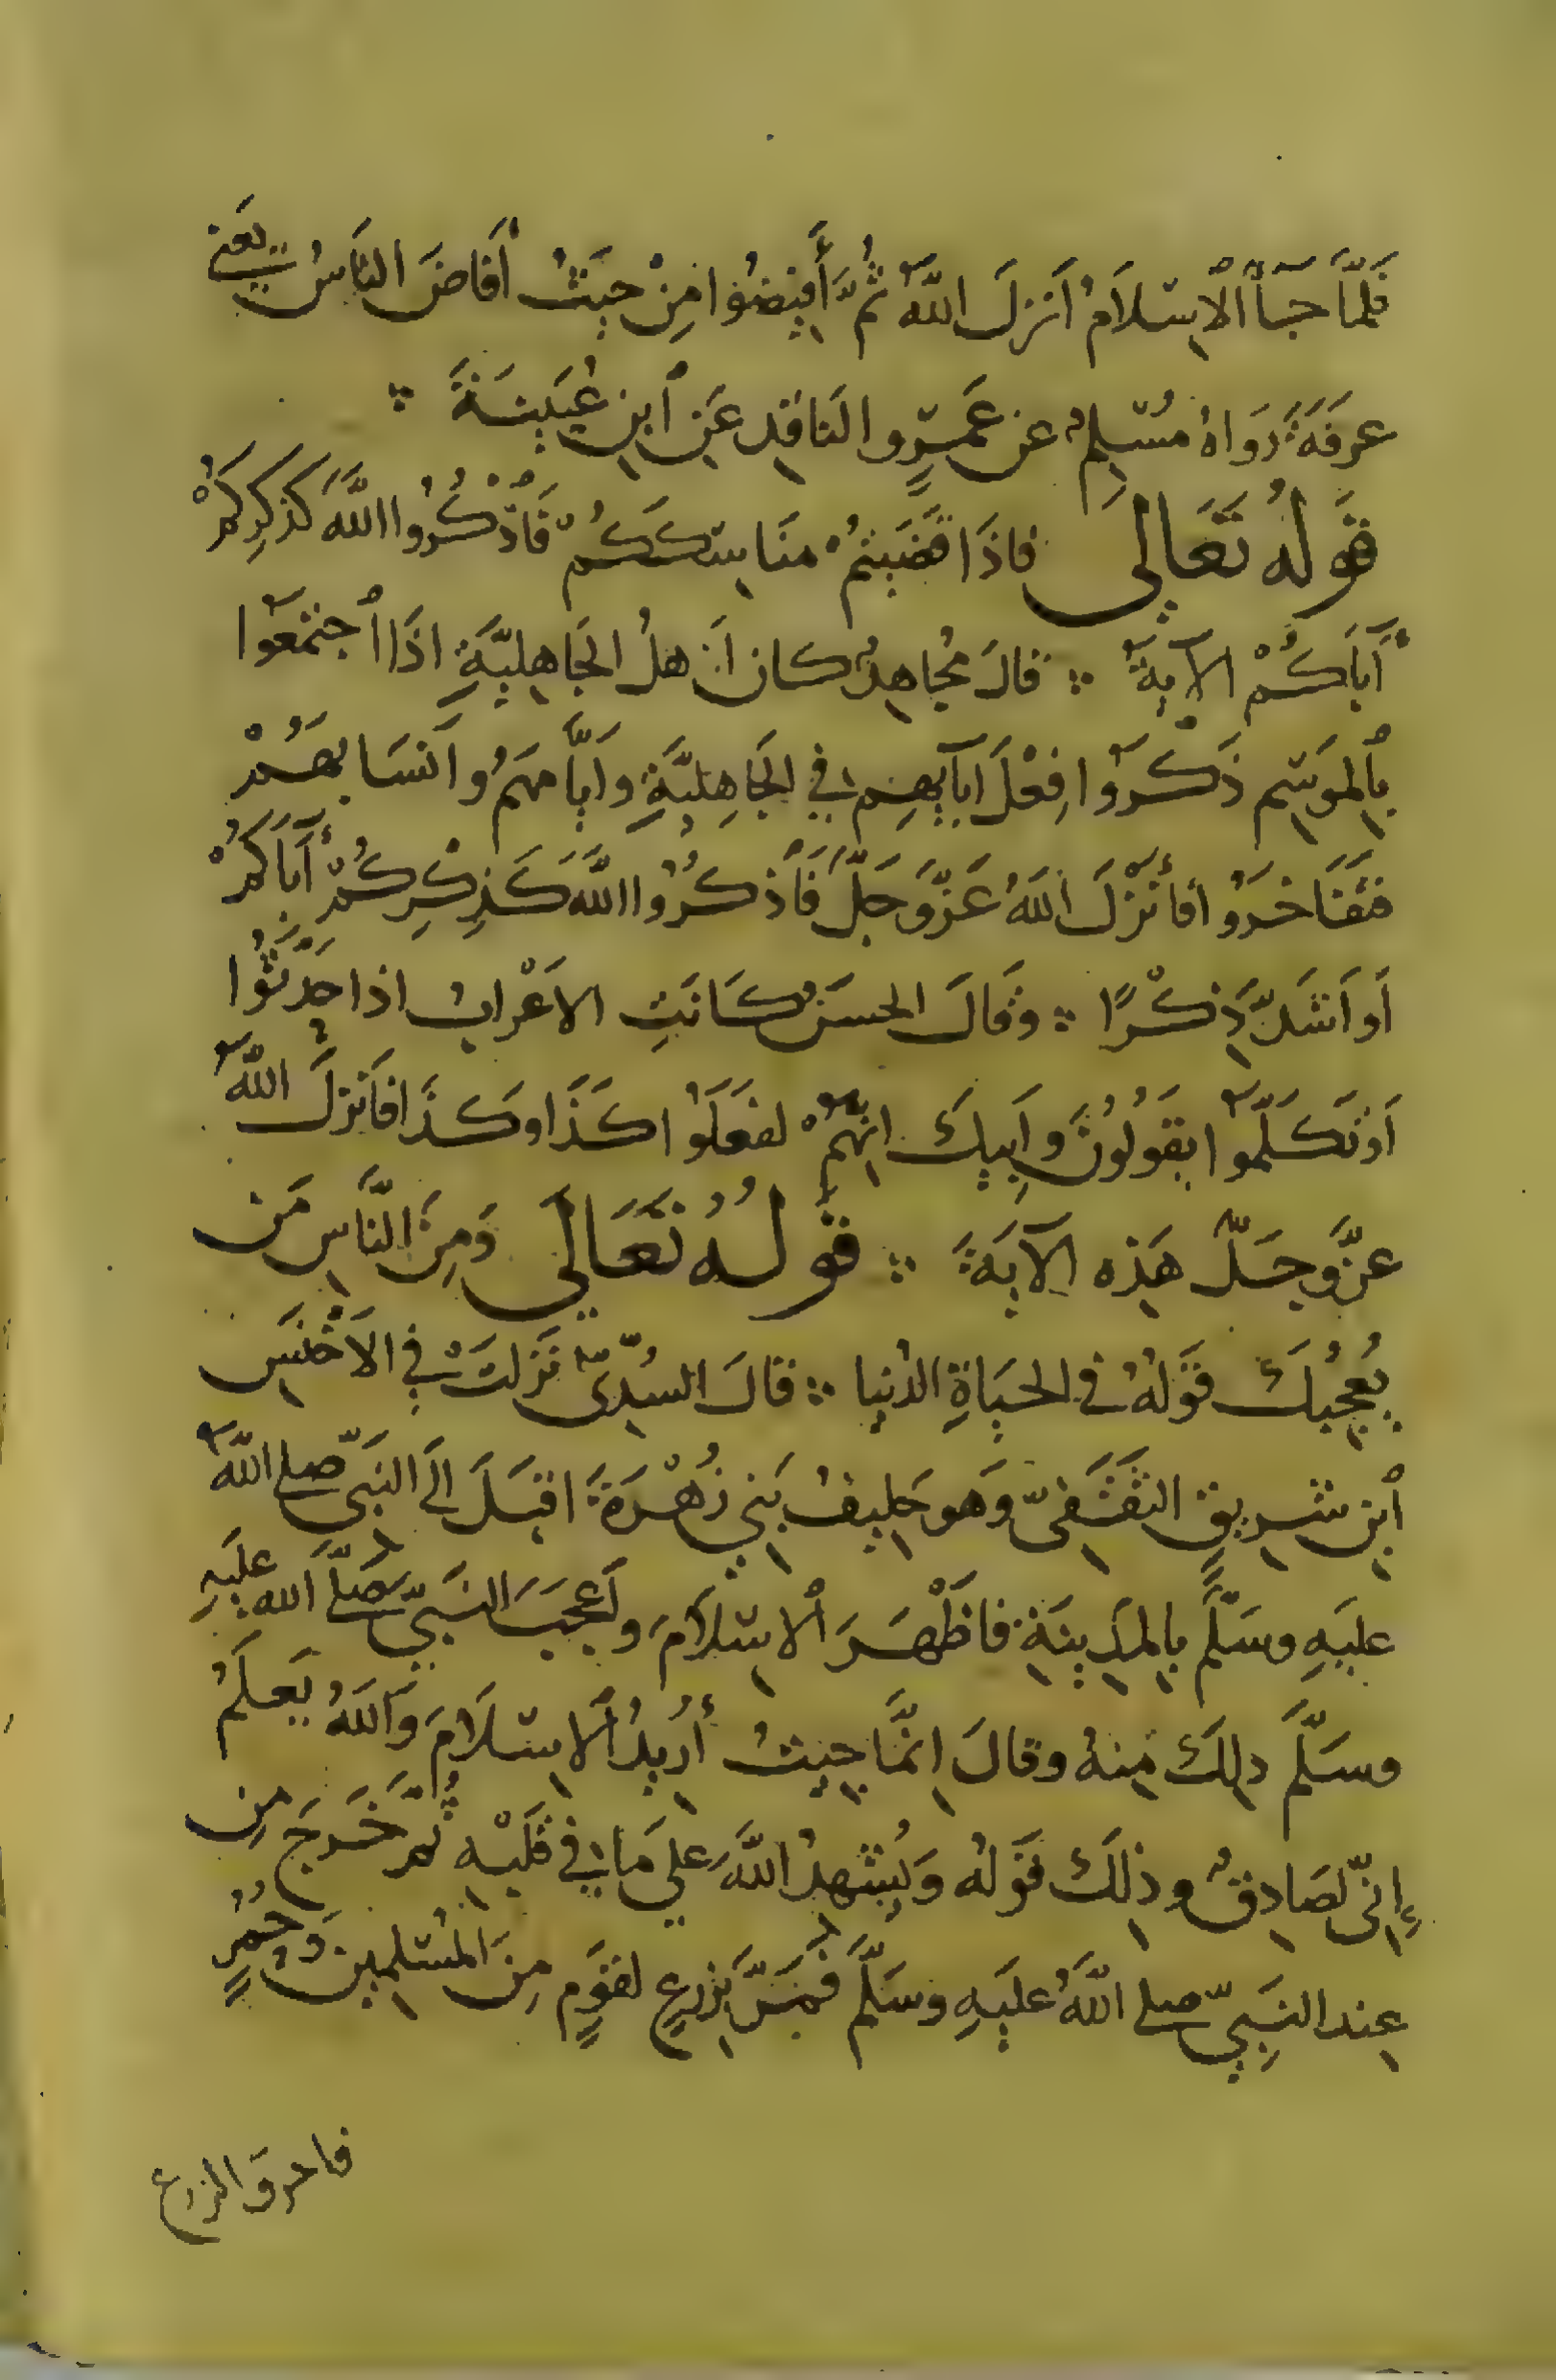 فَلَمَّا جَآ الْاِسْلَامُ اَنزَلَ اللّٰهُ ثُمَّ أَفِيضُوا مِنْ حَيْثُ أَفَاضَ النَّاسُ يَعْنِي
عرفَةَ رَوَاهُ مُسْلِمٌ عن عَمْرٍو النَاقِدِ عَنِ ابْنِ عُيَيْنَةَ
قَولُهُ تَعَالَى فاذَا قَضَيْتُمْ مَنَاسِكَكُمْ فَاذْكُرُوا اللَّهَ كَذِكْرِكُمْ
آبَاكُمْ الآيةَ قالَ مُجَاهِدٌ كان اَهلُ الجَاهِليَّةِ اذَا اجتَمَعُوا
بِالمَوسِمِ ذَكَرُوا فِعْلَ ابَآيِهِم في الجَاهِليَّةِ وَايَّامَهُم وانسَابهَمُمْ
فتَفَاخَرُوا فأَنْزَلَ اللّهُ عَزَّوَجَلَّ فَاذكُرُوا اللَّهَ كَذِكْرِكُمْ آبَاكُمْ
اَو اَشَدَّ ذِكْرًا وقَالَ الحسَنُ كَانَتِ الاَعْرابُ اذا حَدَّثُوا
اَو تَكَلَّمُوا يَقُولُونَ وَاَبِيكَ انهُمْ لفَعَلُوا كَذَا وكَذَا فاَنزلَ اللّٰهُ
عزَّوجَلَّ هَذِه الآيَةَ قولُهُ تَعَالَى وَمِنَ النَّاسِ مَن
يُعْجِبُكَ قَولُهُ في الحيَاةِ الدُنيا قالَ السُدِّىُّ نَزَلَتْ فِي الاَخْنَسِ
ابنِ شَرِيقٍ الثَقَفىِّ وَهو حَلِيفُ بَنِي زُهْرَةَ اقبَلَ الَى النَبىِّ صلى اللّٰهُ
عليَهِ وسَلَّمَ بِالمدِينَةِ فاَظْهَرَ الْاِسْلَامَ واَعجَبَ النَبيَّ صَلّى اللّه علَيهِ
وسَلَّمَ ذلِكَ مِنهُ وقالَ اِنَّمَا جِيتُ أُرِيدُ الاِسْلَامَ وَاللّهُ يَعلَمُ
إِنِّي لَصَادِقٌ وذلِكَ قَولُه وَيُشْهِدُ اللَّهَ علي مَا في قَلْبِه ثُمَّ خَرَجَ مِن
عِند النَبِيِّ صلى اللَّهُ علَيهِ وسَلَّمَ فَمَرَّ بِزرعٍ لقَومٍ مِنَ المُسْلمِينَ وَحُمُرٍ
فاحرق الزرع